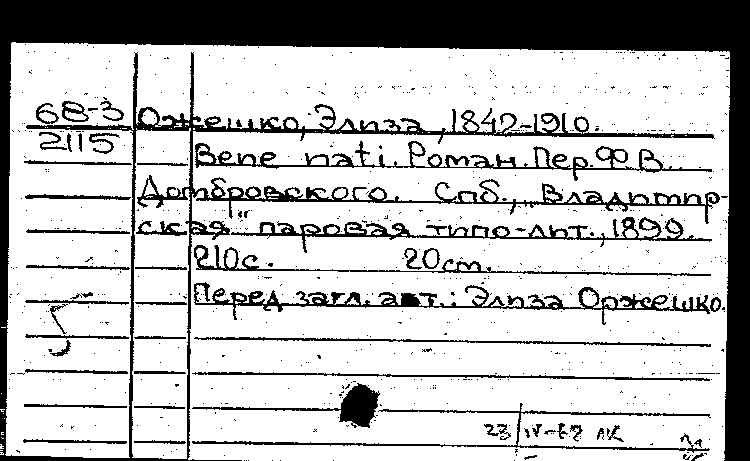 68-3
2115
Ожешко, Элиза, 1842-1910.
Bene nati. Роман. Пер. Ф.В.
Домбровского. Спб., „Владимир-
ская" паровая типо-лит., 1899.
210с. 20см.
Перед загл. авт.: Элиза Оржешко.
5
23/IV-68 ЛК